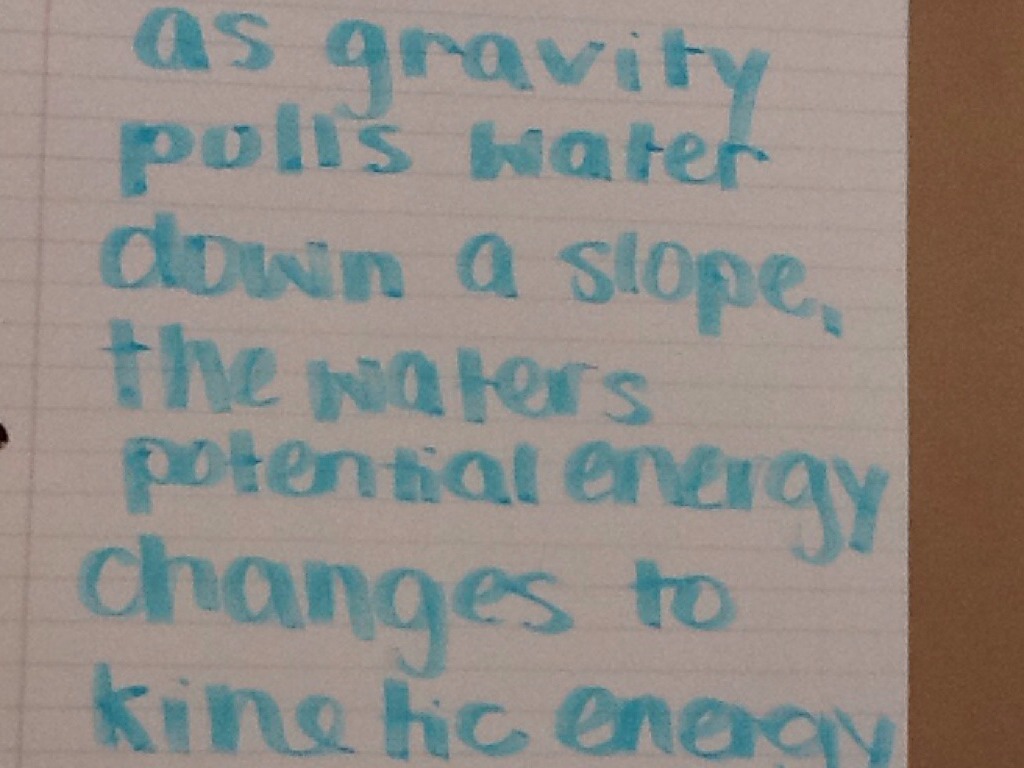 as gravity
pulls water
down a slope,
the waters
potential energy
changes to
kinetic energy